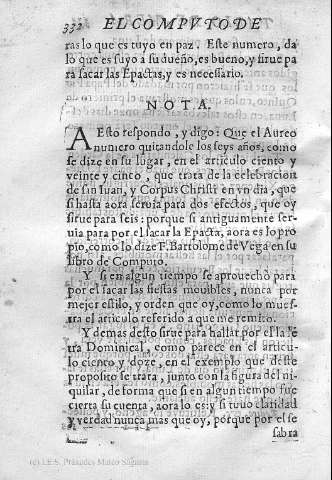 332 EL COMPVTO DE
ras lo que es tuyo en paz. Este numero, da
lo que es suyo à su dueño, es bueno, y sirue pa
ra sacar las Epactas, y es necessario.
NOTA.
A Esto respondo, y digo: Que el Aureo
numero quitandole los seys años, como
se dize en su lugar, en el articulo ciento y
veinte y cinco, que trata de la celebracion
de san Iuan, y Corpus Christi en vn dia, que
si hasta aora seruia para dos efectos, que oy
sirue para seis: porque si antiguamente ser-
uia para por el sacar la Epacta, aora es lo pro
pio, como lo dize F. Bartolome de Vega en su
libro de Computo.
Y si en algun tiempo se aprouechò para
por el sacar las fiestas mouibles, nunca por
mejor estilo, y orden que oy, como lo mues-
tra el articulo referido a que me remito.
Y demas desto sirue para hallar por el la le
tra Dominical, como parece en el articu-
lo ciento y doze, en el exemplo que deste
proposito se trata, junto con la figura del ni-
quilar, de forma que si en algun tiempo fue
cierta su cuenta, aora lo es: y si tuuo claridad
y verdad nunca mas que oy, porque por el se
sabra
(c) I.E.S. Práxedes Mateo Sagasta